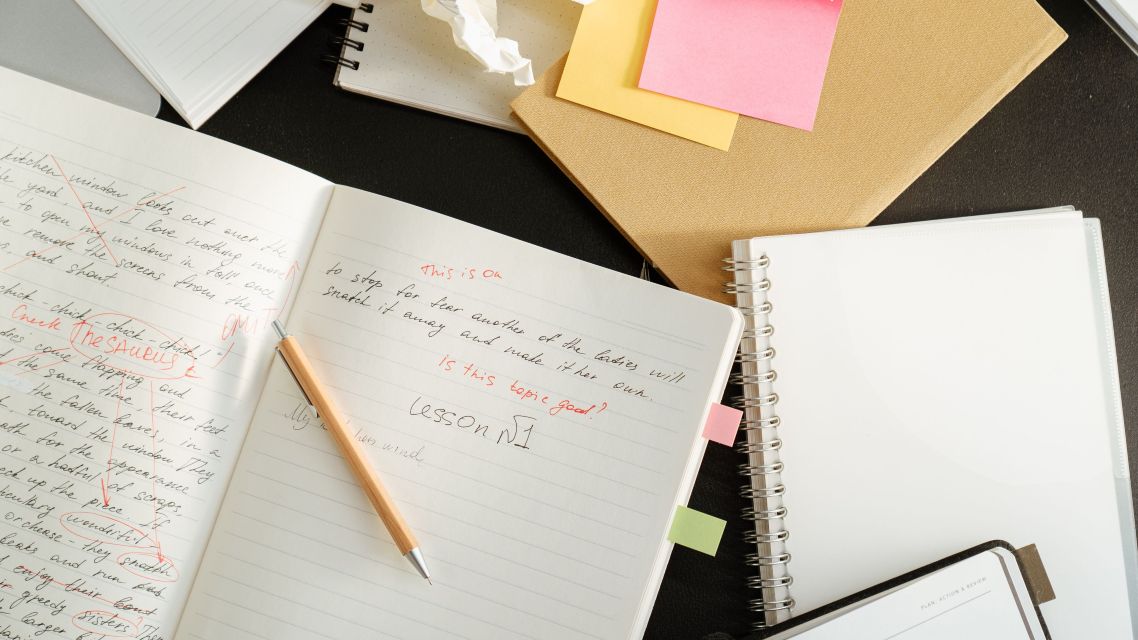 kitchen window looks out over the
yard, and I love nothing more
to open my windows in fall, once
remove the screens from the
and shout.
chick-chick-chick-chick!
OMIT
Check THESAURUS
come flapping and
the same time, their feet
the fallen leaves, in a
toward the window. They
for the appearance
or a handful of scraps,
up the piece if
wonderful
or cheese - they snatch
beaks and run and
enjoy their
greedy
sisters. The
larger
This is on
to stop for fear another of the ladies will
snatch it away and make it her own.
Is this topic good?
Lesson №1
My
PLAN, ACTION & REVIEW